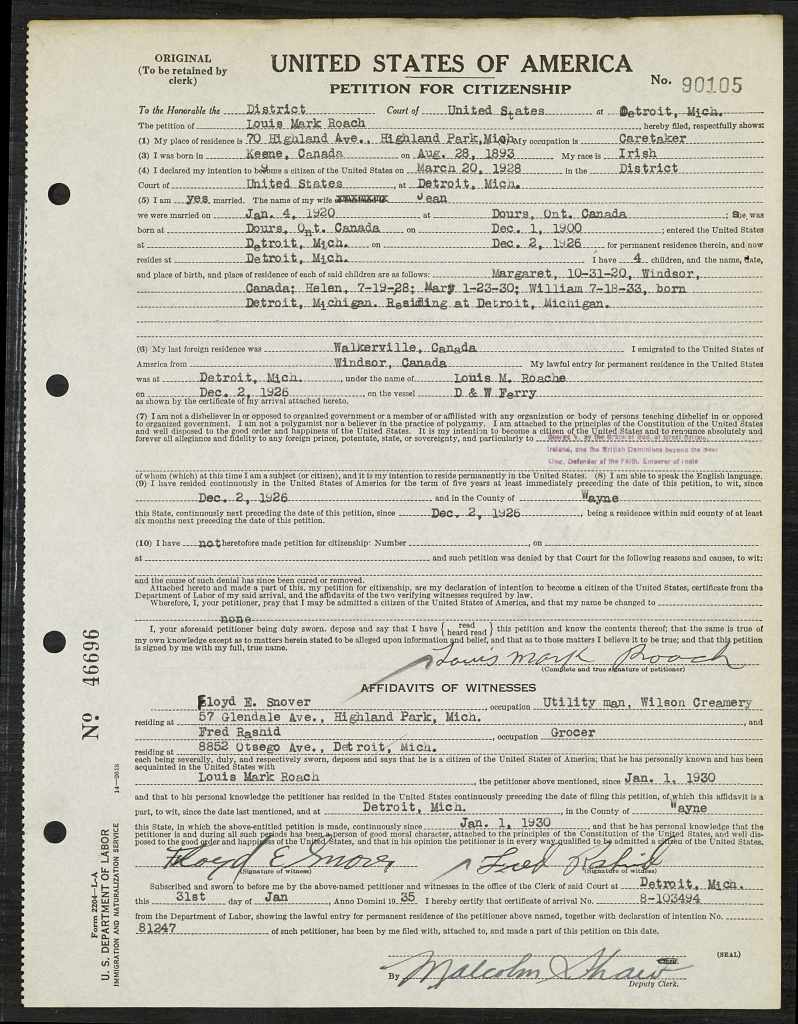 ORIGINAL
(To be retained by
clerk)
UNITED STATES OF AMERICA
PETITION FOR CITIZENSHIP
No. 90105
To the Honorable the District Court of United States at Detroit, Mich.
The petition of Louis Mark Roach hereby filed, respectfully shows:
(1) My place of residence is 70 Highland Ave., Highland Park, Mich. My occupation is Caretaker
(3) I was born in Keene, Canada on Aug. 28, 1893 My race is Irish
(4) I declared my intention to become a citizen of the United States on March 20, 1928 in the District
Court of United States, at Detroit, Mich.
(5) I am yes married. The name of my wife Jean
we were married on Jan. 4, 1920 at Dours, Ont. Canada; she was
born at Dours, Ont. Canada on Dec. 1, 1900; entered the United States
at Detroit, Mich. on Dec. 2, 1926 for permanent residence therein, and now
resides at Detroit, Mich. I have 4 children, and the name, date,
and place of birth, and place of residence of each of said children are as follows: Margaret, 10-31-20, Windsor,
Canada; Helen, 7-19-28; Mary 1-23-30; William 7-18-33, born
Detroit, Michigan. Residing at Detroit, Michigan.
(6) My last foreign residence was Walkerville, Canada I emigrated to the United States of
America from Windsor, Canada My lawful entry for permanent residence in the United States
was at Detroit, Mich. under the name of Louis M. Roache
on Dec. 2, 1926, on the vessel D & W Ferry
as shown by the certificate of my arrival attached hereto.
(7) I am not a disbeliever in or opposed to organized government or a member of or affiliated with any organization or body of persons teaching disbelief in or opposed
to organized government. I am not a polygamist nor a believer in the practice of polygamy. I am attached to the principles of the Constitution of the United States
and well disposed to the good order and happiness of the United States. It is my intention to become a citizen of the United States and to renounce absolutely and
forever all allegiance and fidelity to any foreign prince, potentate, state, or sovereignty, and particularly to George V, by the Grace of God, of Great Britain,
Ireland, and the British Dominions beyond the Seas
King, Defender of the Faith, Emperor of India
of whom (which) at this time I am a subject (or citizen), and it is my intention to reside permanently in the United States. (8) I am able to speak the English language.
(9) I have resided continuously in the United States of America for the term of five years at least immediately preceding the date of this petition, to wit, since
Dec. 2, 1926 and in the County of Wayne
this State, continuously next preceding the date of this petition, since Dec. 2, 1926, being a residence within said county of at least
six months next preceding the date of this petition.
(10) I have not heretofore made petition for citizenship: Number , on
at and such petition was denied by that Court for the following reasons and causes, to wit:
and the cause of such denial has since been cured or removed.
Attached hereto and made a part of this, my petition for citizenship, are my declaration of intention to become a citizen of the United States, certificate from the
Department of Labor of my said arrival, and the affidavits of the two verifying witnesses required by law.
Wherefore, I, your petitioner, pray that I may be admitted a citizen of the United States of America, and that my name be changed to
none
I, your aforesaid petitioner being duly sworn, depose and say that I have {read heard read} this petition and know the contents thereof; that the same is true of
my own knowledge except as to matters herein stated to be alleged upon information and belief, and that as to those matters I believe it to be true; and that this petition
is signed by me with my full, true name.
Louis Mark Roach
(Complete and true signature of petitioner)
AFFIDAVITS OF WITNESSES
Floyd E. Snover, occupation Utility man, Wilson Creamery
residing at 57 Glendale Ave., Highland Park, Mich., and
Fred Rashid, occupation Grocer
residing at 8852 Otsego Ave., Detroit, Mich.
each being severally, duly, and respectively sworn, deposes and says that he is a citizen of the United States of America; that he has personally known and has been
acquainted in the United States with
Louis Mark Roach, the petitioner above mentioned, since Jan. 1, 1930
and that to his personal knowledge the petitioner has resided in the United States continuously preceding the date of filing this petition, of which this affidavit is a
part, to wit, since the date last mentioned, and at Detroit, Mich., in the County of Wayne
this State, in which the above-entitled petition is made, continuously since Jan. 1, 1930, and that he has personal knowledge that the
petitioner is and during all such periods has been a person of good moral character, attached to the principles of the Constitution of the United States, and well dis-
posed to the good order and happiness of the United States, and that in his opinion the petitioner is in every way qualified to be admitted a citizen of the United States.
Floyd E Snover Fred Rashid
(Signature of witness) (Signature of witness)
Subscribed and sworn to before me by the above-named petitioner and witnesses in the office of the Clerk of said Court at Detroit, Mich.
this 31st day of Jan, Anno Domini 1935 I hereby certify that certificate of arrival No. 8-103494
from the Department of Labor, showing the lawful entry for permanent residence of the petitioner above named, together with declaration of intention No.
81247 of such petitioner, has been by me filed with, attached to, and made a part of this petition on this date.
(SEAL)
By Malcolm Shaw
Deputy Clerk.
No 46696
14-2618
Form 2204-L-A
U. S. DEPARTMENT OF LABOR
IMMIGRATION AND NATURALIZATION SERVICE